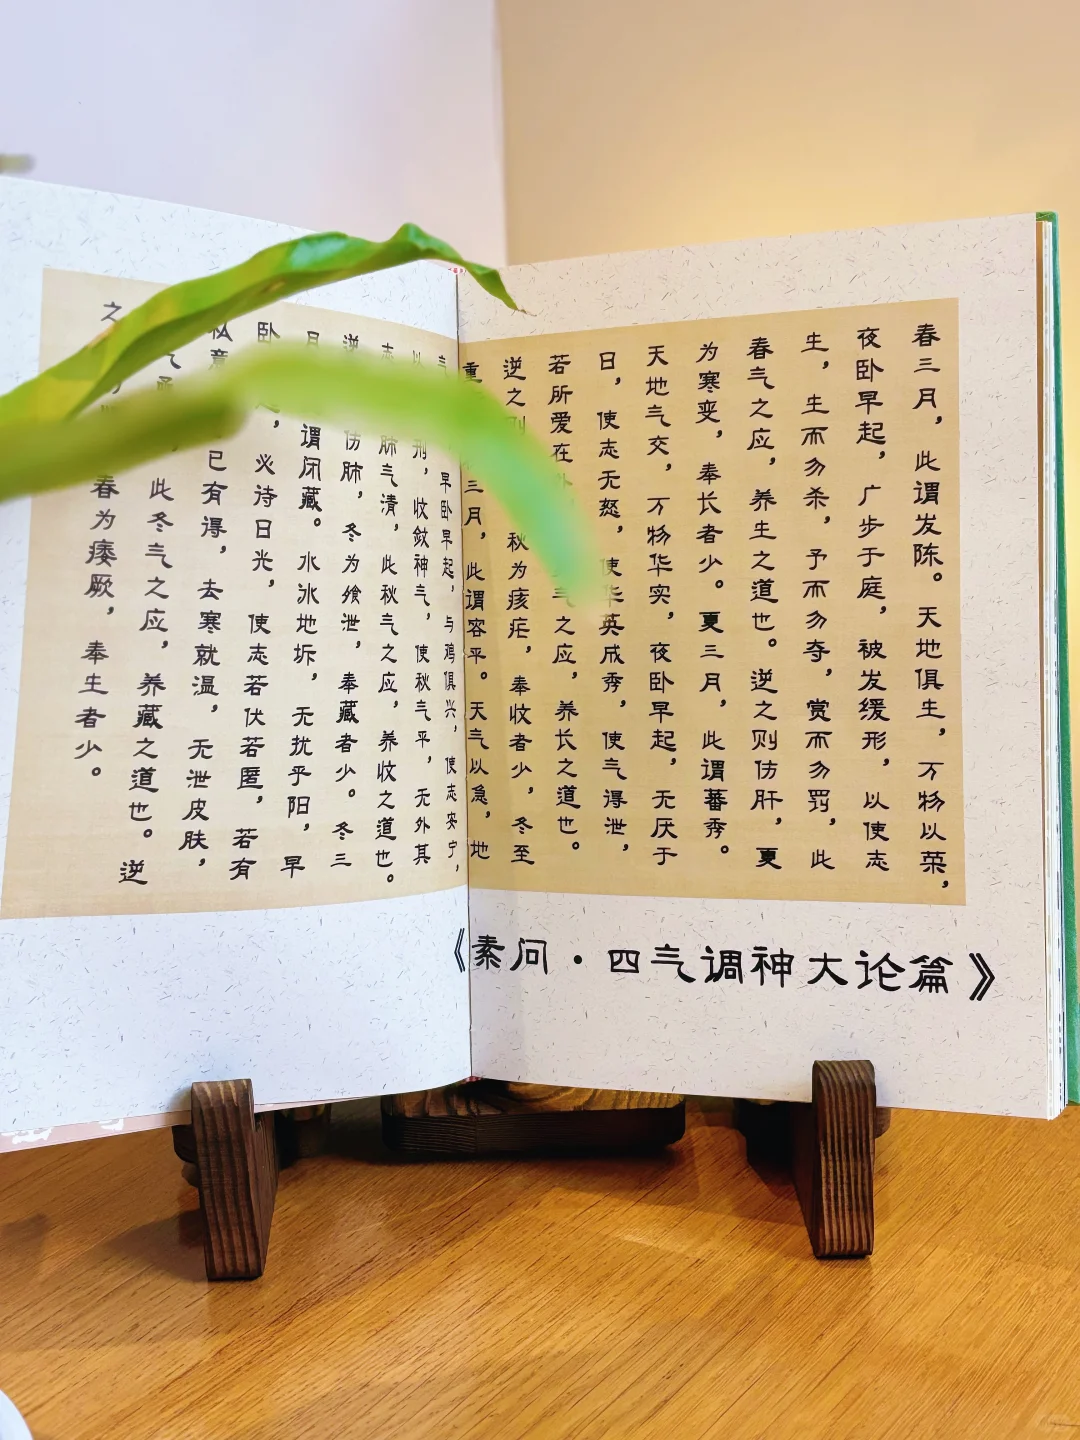 春三月，此谓发陈。天地俱生，万物以荣，
夜卧早起，广步于庭，被发缓形，以使志
生，生而勿杀，予而勿夺，赏而勿罚，此
春气之应，养生之道也。逆之则伤肝，夏
为寒变，奉长者少。夏三月，此谓蕃秀。
天地气交，万物华实，夜卧早起，无厌于
日，使志无怒，使华英成秀，使气得泄，
若所爱在外，气之应，养长之道也。
逆之则秋为痎疟，奉收者少，冬至
重三月，此谓容平。天气以急，地
早卧早起，与鸡俱兴，使志安宁，
以刑，收敛神气，使秋气平，无外其
志肺气清，此秋气之应，养收之道也。
逆伤肺，冬为飧泄，奉藏者少。冬三
月谓闭藏。水冰地坼，无扰乎阳，早
卧，必待日光，使志若伏若匿，若有
私意已有得，去寒就温，无泄皮肤，
气，此冬气之应，养藏之道也。逆
之春为痿厥，奉生者少。
《素问·四气调神大论篇》